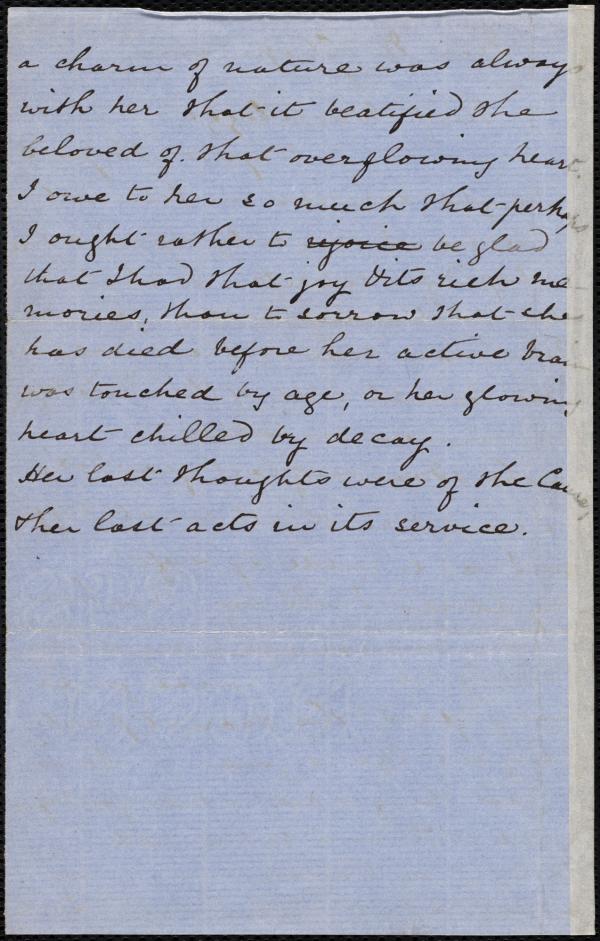 a charm of nature was always
with her that it beatified the
beloved of that overflowing heart.
I owe to her so much that perhaps
I ought rather to rejoice be glad
that I had that joy & its rich me
mories, than to sorrow that she
has died before her active brain
was touched by age, or her glowing
heart chilled by decay.
Her last thoughts were of the Cause,
& her last acts in its service.